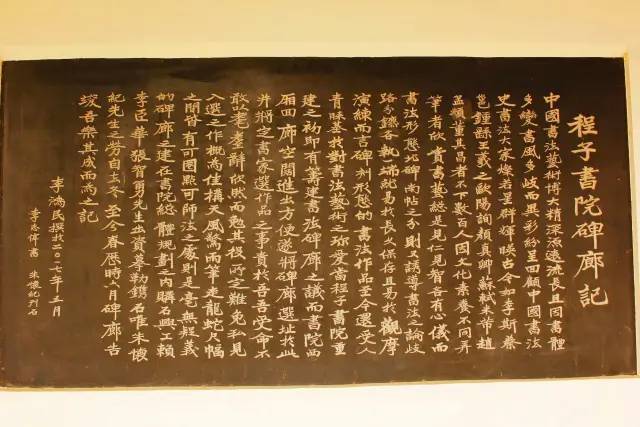 程子書院碑廊記
中國書法藝術博大精深源遠流長且因書體
多變書風多歧而異彩紛呈回顧中國書法
史書法大家燦若星群輝映古今如李斯蔡
邕鍾繇王羲之歐陽詢顏真卿蘇軾米芾趙
孟頫董其昌者不下數百人因文化素養不同弄
筆者欣賞書藝總是見仁見智有心儀而
書法形態北碑南帖之分則又誘導書法之論歧
路分鑣各執一端紀易於長久保存且易於觀摩
演練而古碑刻形態的書法作品至今還受人
青睞基於對書法藝術之珍愛當程子書院重
建之初即有籌建書法碑廊之議而書院西
廂四廊空闊進出方便遂將碑廊選址於此
并將之書家選作品之事責於吾吾受命不
敢以老耄辭欣然而勉其役所之難免私見
入選之作概為佳構天風驚雨筆走龍蛇尺幅
之間皆有可圈點可師法之處則是毫無疑義
的碑廊之建在書院總體規劃之內購石興工賴
李臣華張智勇先生出資摹勒鐫石唯朱懷
紀先生之勞自去冬至今春歷時六月碑廊告
竣吾樂其成而為之記
李鴻民撰於二〇一七年三月
李志偉書 朱懷紀刊石